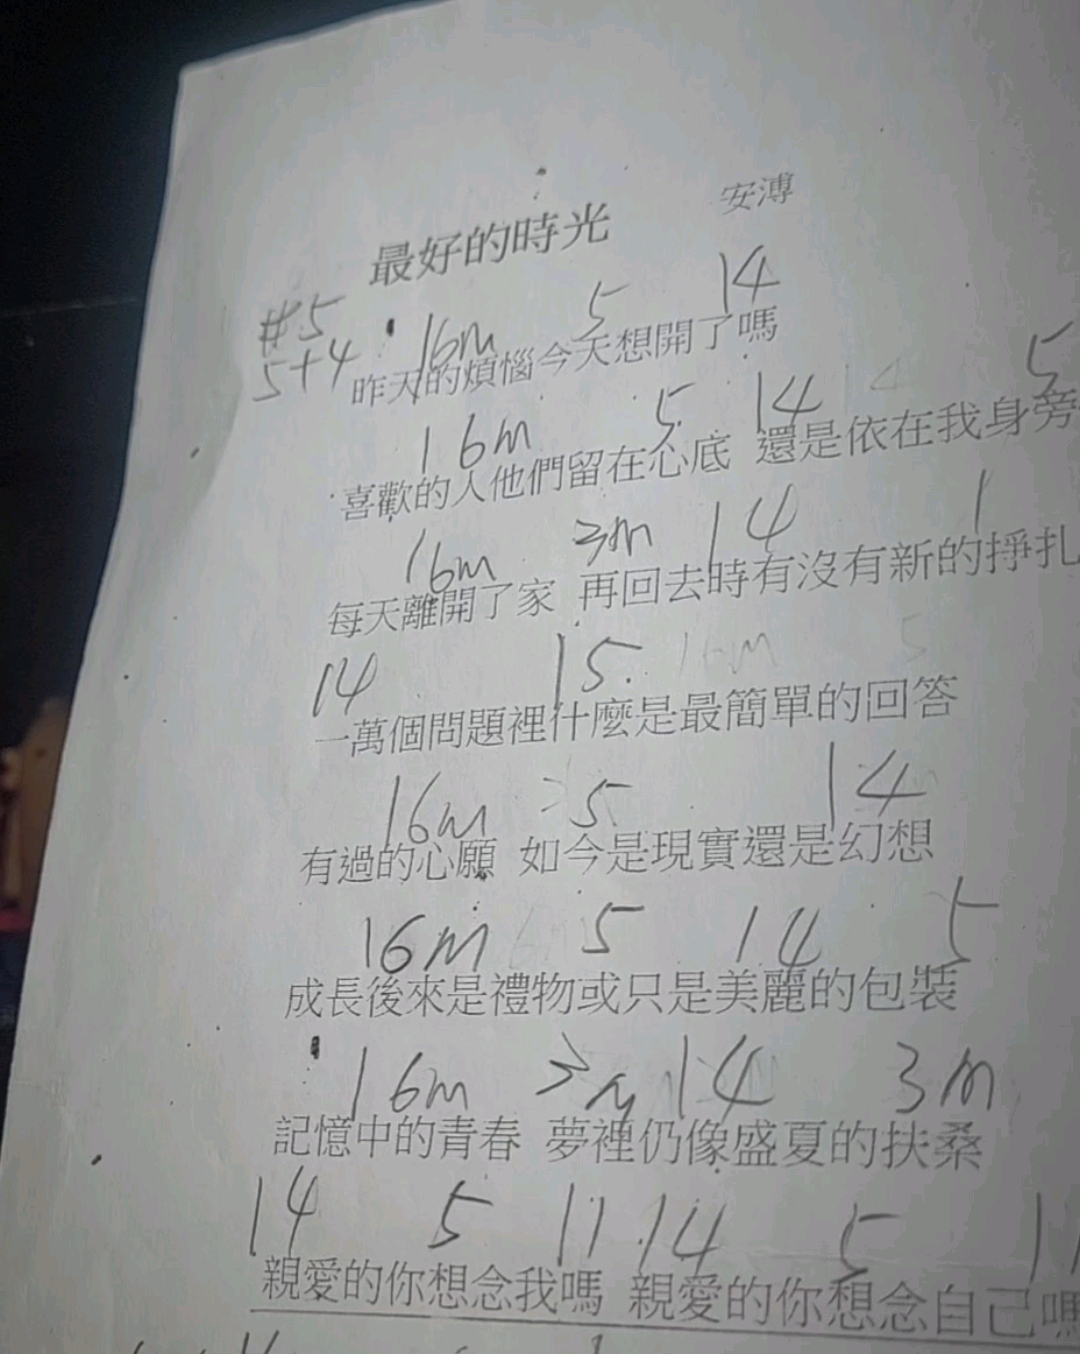 最好的時光 安溥
#5 16m 5 14
5+4
昨天的煩惱今天想開了嗎
16m 5 14 5
喜歡的人他們留在心底 還是依在我身旁
16m 3m 14 1
每天離開了家 再回去時有沒有新的掙扎
14 15
一萬個問題裡什麼是最簡單的回答
16m 5 14
有過的心願 如今是現實還是幻想
16m 5 14 5
成長後來是禮物或只是美麗的包裝
16m 3m 14 3m
記憶中的青春 夢裡仍像盛夏的扶桑
14 5 11 14 5 11
親愛的你想念我嗎 親愛的你想念自己嗎